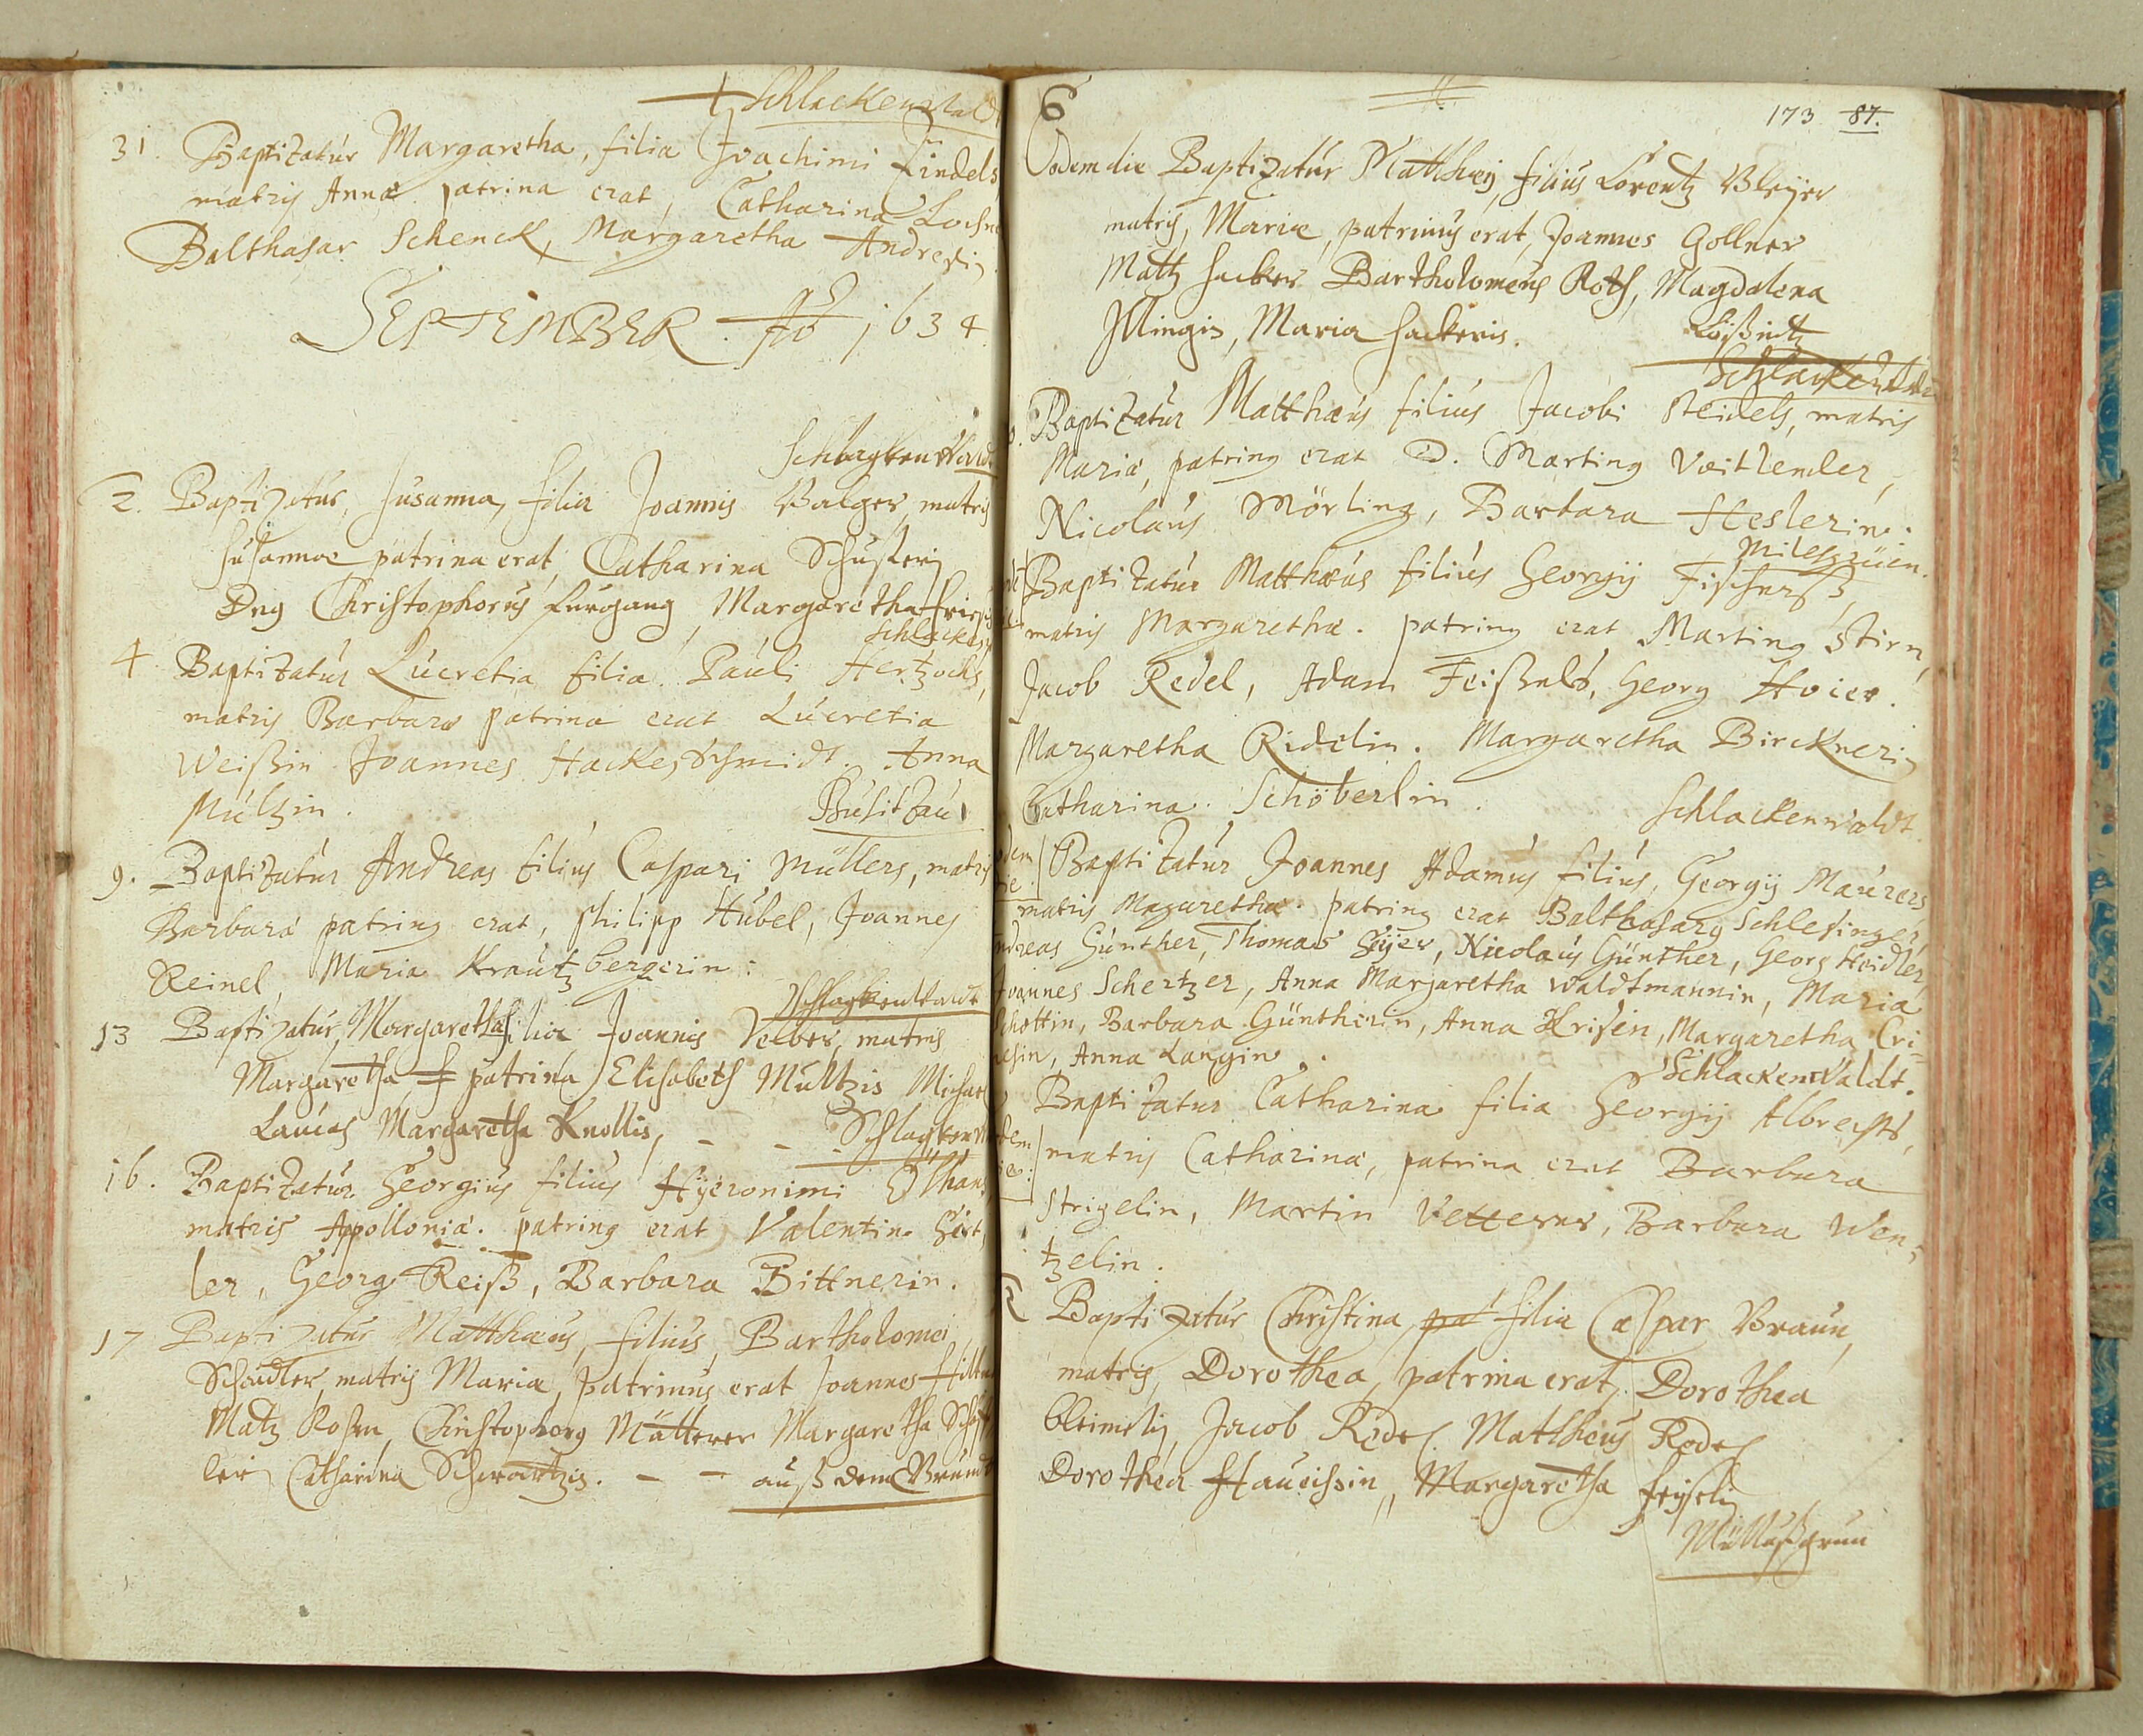 Schlackenwald
31. Baptizatur Margaretha, filia Joachimi Findels,
matris Annæ. patrina erat, Catharina Lochne
Balthasar Schenck, Margaretha Andresin.
SEPTEMBER. Aō 1634.
Schlagkenwald
2. Baptizatur, Susanna, filia Joannis Balger, matris
Susannæ patrina erat, Catharina Schusterin
Christophorus Furgang, Margaretha
Schlacken
4 Baptizatus Lucretia filia Pauli Hertzochs,
matris Barbaræ patrina erat Lucretia
Weißin Joannes Hackeschmidt. Anna
Mültzin.
9. Baptizatur Andreas filius Caspari Müllers, matris
Barbaræ patrinq erat, Philipp Hübel, Joannes
Reinel, Maria Krautzbergerin.
Schlagkenwaldt
13 Baptizatur, Margaretha filia Joannis Velber, matris
Margaretha, patrina Elisabeth Multzis Michael
Laucas Margaretha Knollis, - - Schlagkenw
16. Baptizatur Georgius filius Hyeronimi
matris Apolloniæ. patrinq erat Valentin
ler, Georg Reiß, Barbara Bittnerin.
17 Baptizatur Matthæus, filius, Bartholomei
Schaidler, matris Maria, patrinus erat Joannes
Matz Christophorq Mätterer Margaretha
ler Catharina Schwartzis. - - auß dem Brundt
6 173 87.
Eodem die Baptizatur Matthæq, filius Lorentz Bleyer
matris, Mariæ, patrinus erat, Joannes Gollner
Mattz Hacker Bartholomeus Roth, Magdalena
Illingin, Maria Hackeris.
Schlackenwald
Baptizatur Matthæus filius Jacobi Steidels, matris
Mariæ, patrinq erat D. Martinq Voitlender,
Nicolaus Mörling, Barbara Heslerin.
Baptizatur Matthæus filius Georgij Fischers,
matris Margarethæ. patrinq erat Martinq Stirn,
Jacob Redel, Adam Georg Hoier.
Margaretha Ridelin. Margaretha Birckneri
Catharina Schöberlin.
Schlackenwaldt
Baptizatur Joannes Adamus filius, Georgij Maurers,
matris Magarethæ. patrinq erat Balthasarq Schlesinger,
Andreas Günther, Thomas Nicolaus Günther, Georg Heidler,
Joannes Schertzer, Anna Margaretha Waldtmannin, Maria
Schottin, Barbara Güntherin, Anna Krisin, Margaretha Cri-
nesin, Anna Langin.
Schlackenwaldt.
Baptizatus Catharina filia Georgij Albrechts,
matris Catharinæ, patrina erat Barbara
Strigelin, Martin Vetterer, Barbara Wen-
tzelin.
Baptizatur Christina, filia Caspar Braun,
matris, Dorothea, patrina erat, Dorothea
Jacob Redel Mattheus Redel
Dorothea Haueissin, Margaretha